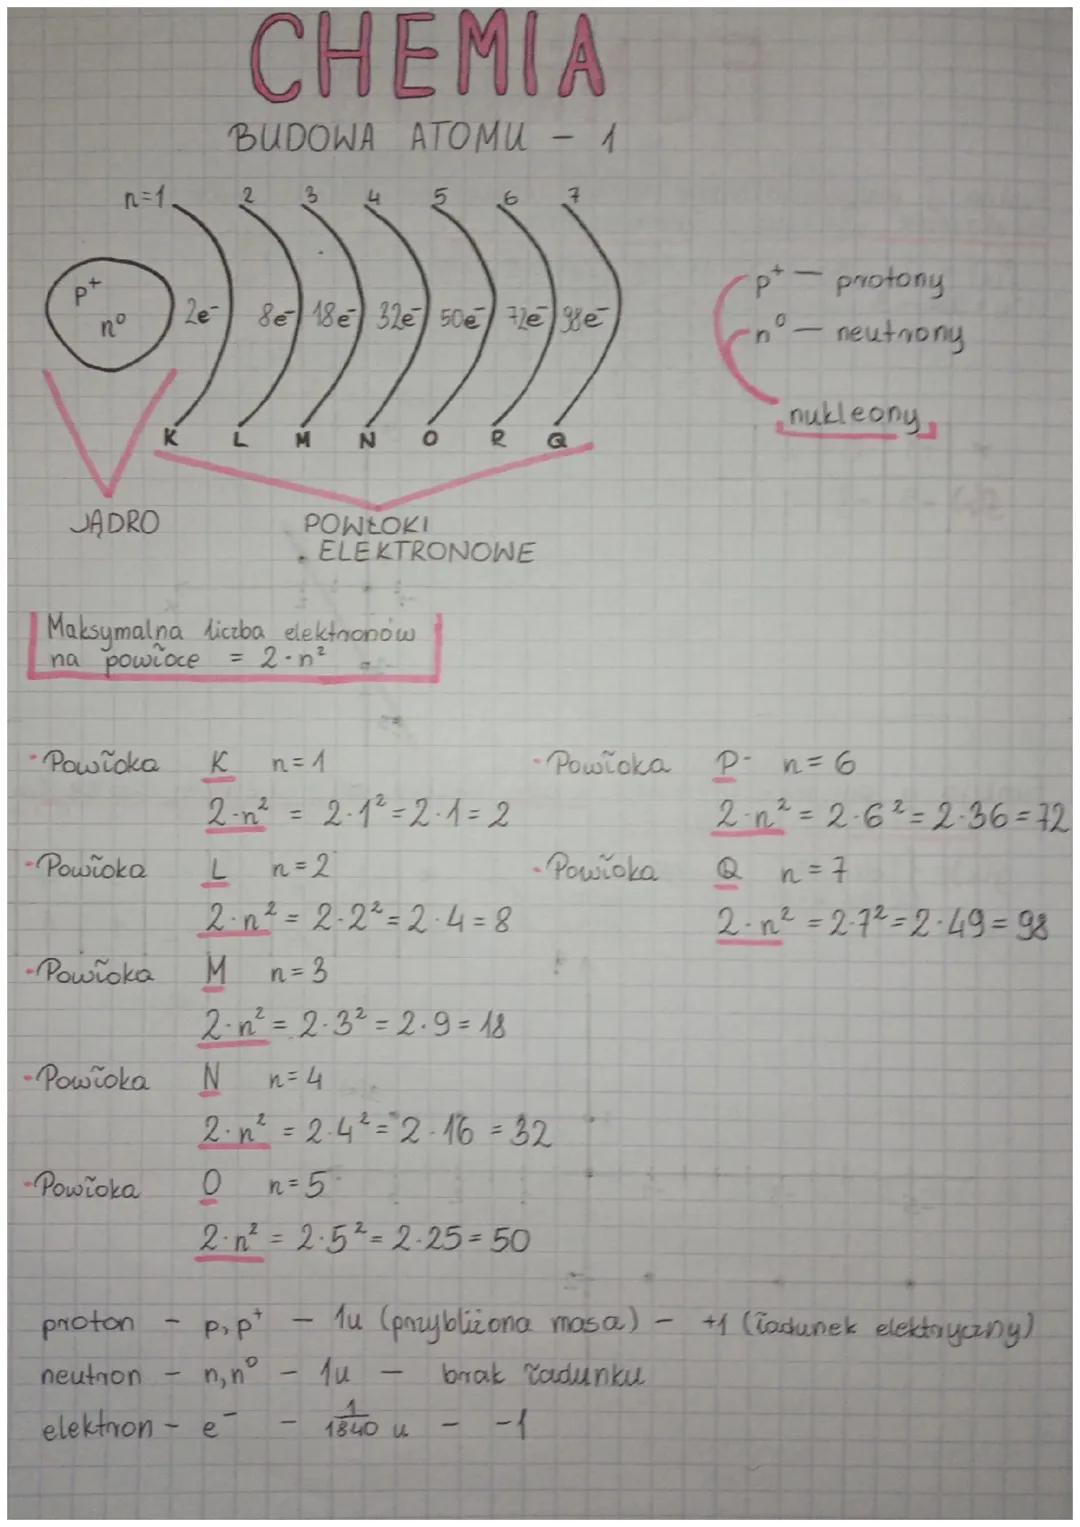 CHEMIA
BUDOWA ATOMU - 1
n=1 2 3 4 5 6 7
p⁺
n⁰
2e⁻ 8e⁻ 18e⁻ 32e⁻ 50e⁻ 72e⁻ 98e⁻
K L M N O P Q
JĄDRO
POWŁOKI
ELEKTRONOWE
p⁺ — protony
n⁰ — neutrony
nukleony
Maksymalna liczba elektronów
na powłoce = 2·n²
·Powłoka K n=1
2·n² = 2·1² = 2·1 = 2
·Powłoka L n=2
2·n² = 2·2² = 2·4 = 8
·Powłoka M n=3
2·n² = 2·3² = 2·9 = 18
·Powłoka N n=4
2·n² = 2·4² = 2·16 = 32
·Powłoka O n=5
2·n² = 2·5² = 2·25 = 50
·Powłoka P n=6
2·n² = 2·6² = 2·36 = 72
·Powłoka Q n=7
2·n² = 2·7² = 2·49 = 98
proton - p, p⁺ - 1u (przybliżona masa) - +1 (ładunek elektryczny)
neutron - n, n⁰ - 1u - brak ładunku
elektron - e⁻ - 1/1840 u - -1